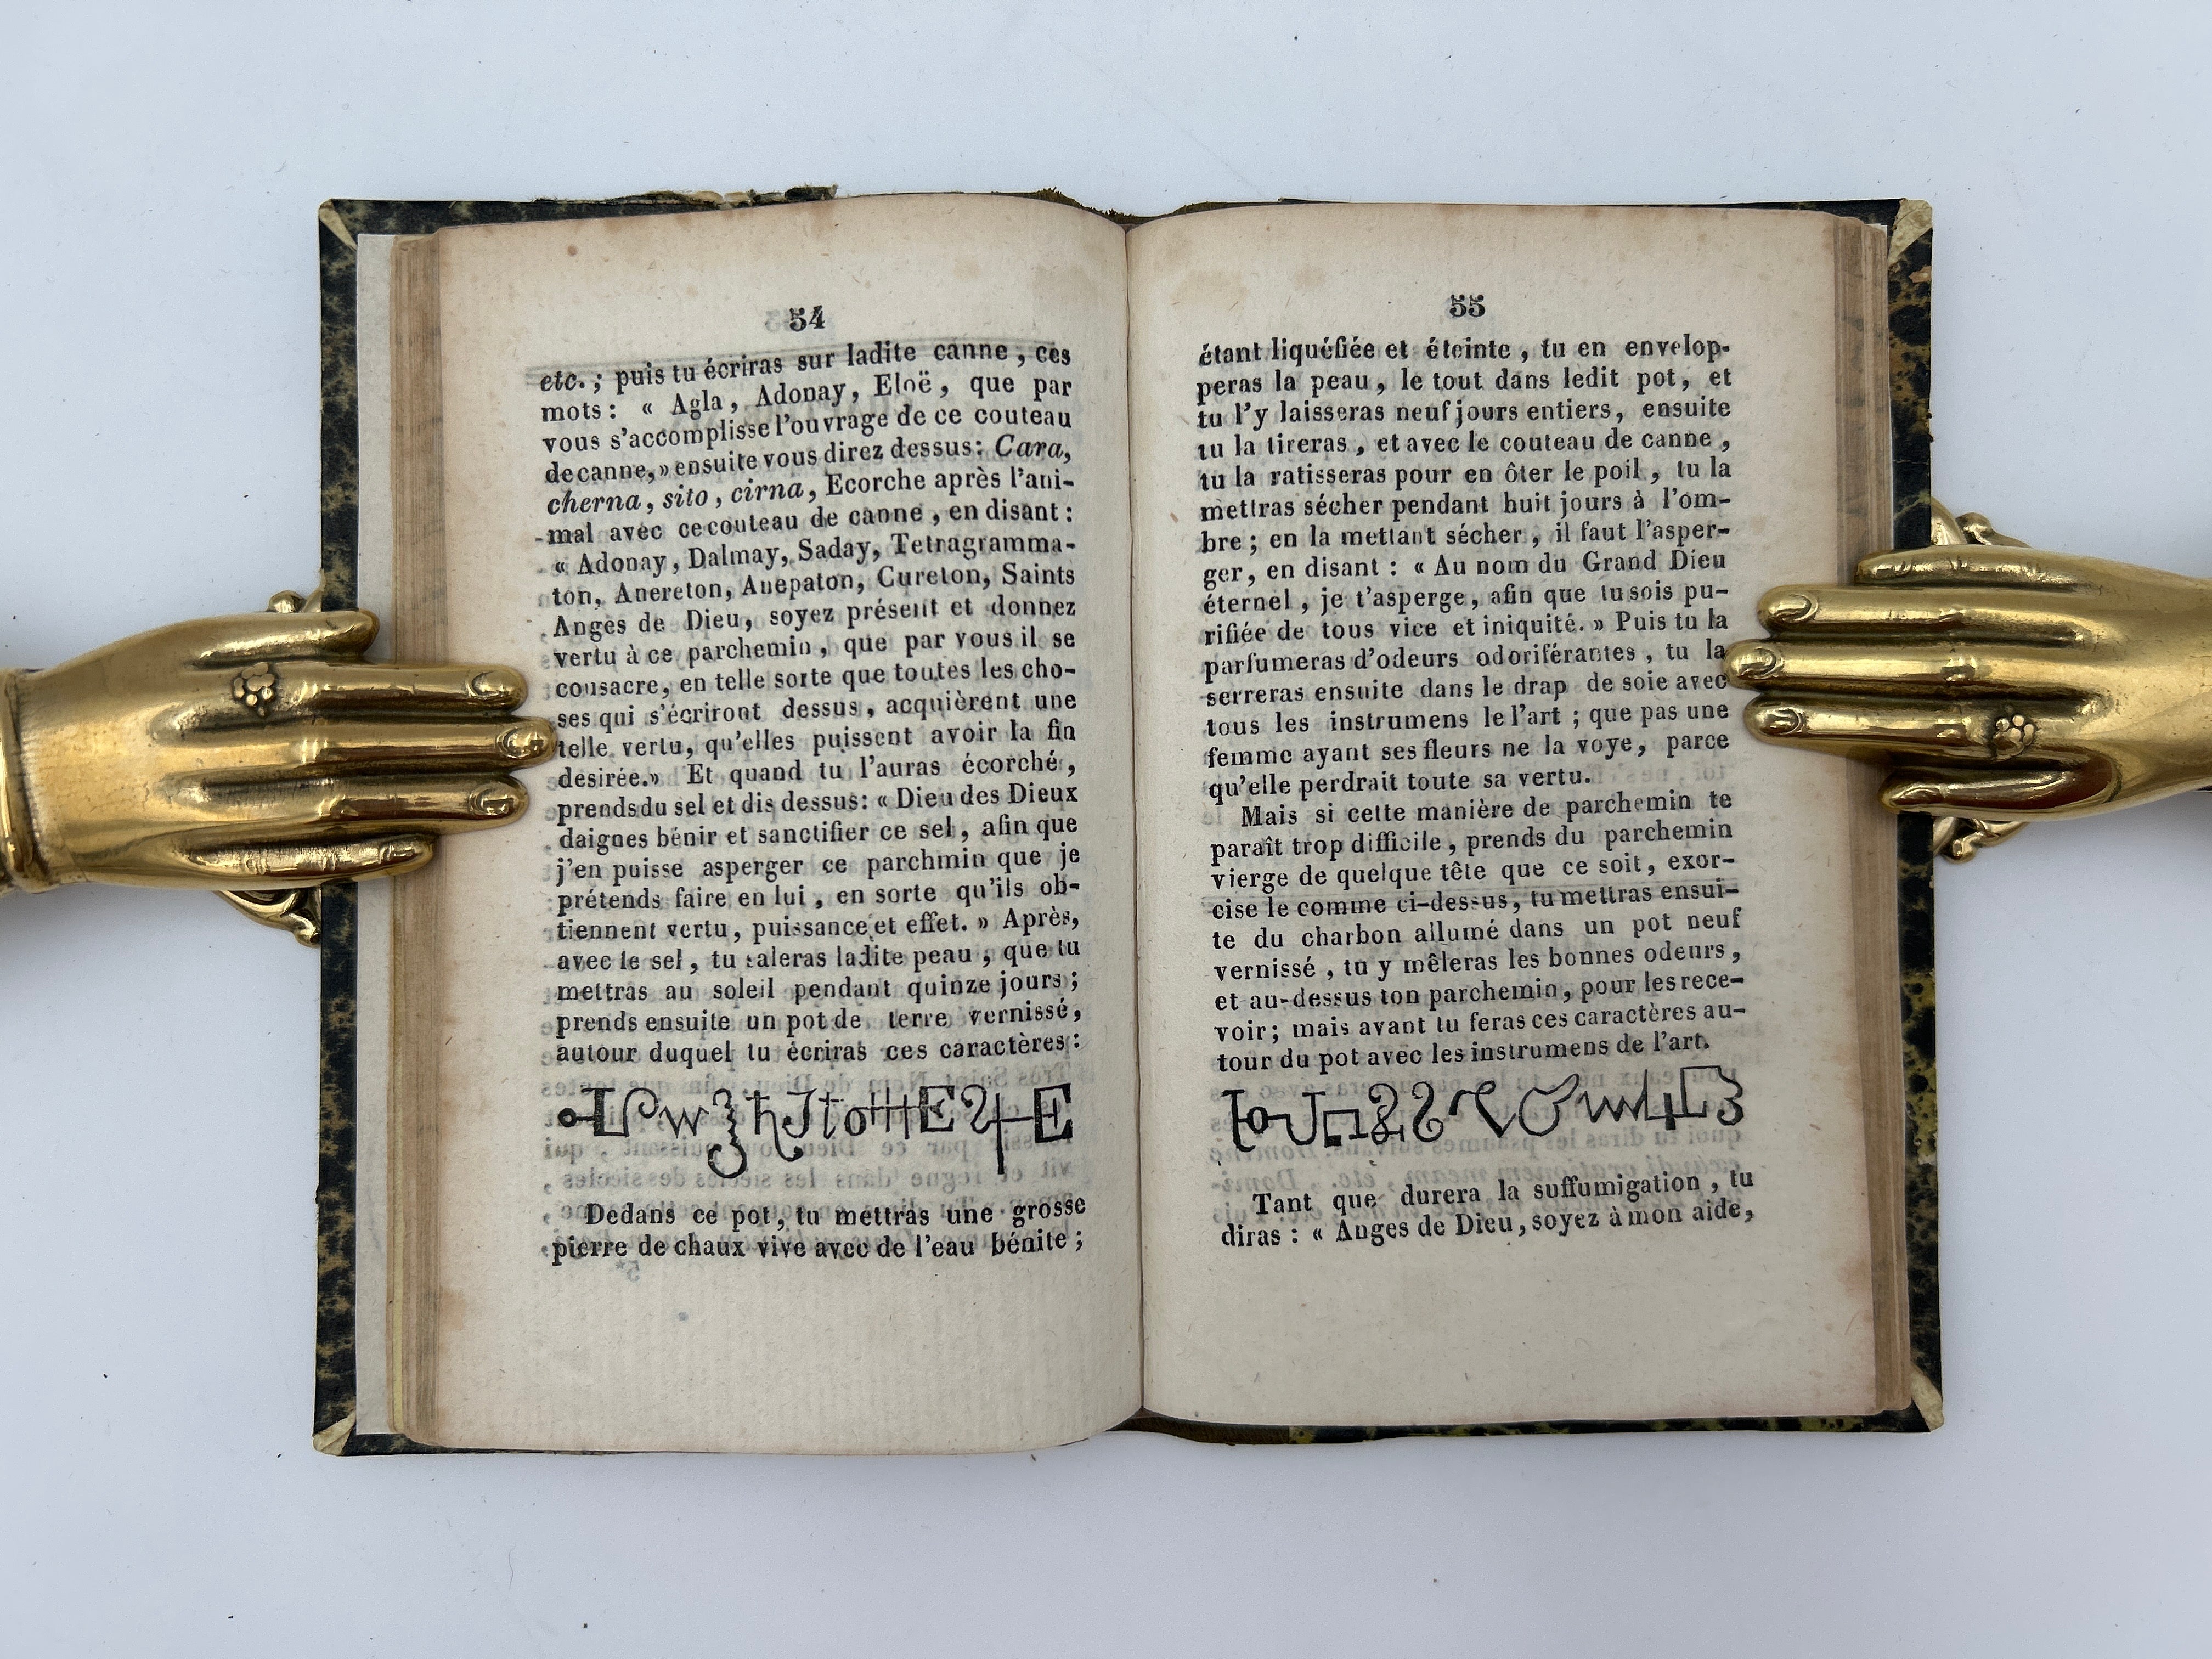 54
etc. ; puis tu écriras sur ladite canne , ces
mots : « Agla , Adonay , Eloë , que par
vous s'accomplisse l'ouvrage de ce couteau
de canne, » ensuite vous direz dessus : Cara,
cherna , sito , cirna , Ecorche après l'ani-
mal avec ce couteau de canne , en disant :
« Adonay , Dalmay, Saday, Tetragramma-
ton, Anereton, Anepaton, Cureton, Saints
Anges de Dieu, soyez présent et donnez
vertu à ce parchemin , que par vous il se
consacre, en telle sorte que toutes les cho-
ses qui s'écriront dessus , acquièrent une
telle vertu, qu'elles puissent avoir la fin
desirée.» Et quand tu l'auras écorché ,
prends du sel et dis dessus : « Dieu des Dieux
daignes bénir et sanctifier ce sel , afin que
j'en puisse asperger ce parchmin que je
prétends faire en lui , en sorte qu'ils ob-
tiennent vertu , puissance et effet. » Après,
avec le sel , tu saleras ladite peau , que tu
mettras au soleil pendant quinze jours ;
prends ensuite un pot de terre vernissé ,
autour duquel tu écriras ces caractères :
Dedans ce pot , tu mettras une grosse
pierre de chaux vive avec de l'eau bénite ;
55
étant liquéfiée et éteinte , tu en envelop-
peras la peau , le tout dans ledit pot, et
tu l'y laisseras neuf jours entiers, ensuite
tu la tireras , et avec le couteau de canne ,
tu la ratisseras pour en ôter le poil , tu la
mettras sécher pendant huit jours à l'om-
bre ; en la mettant sécher , il faut l'asper-
ger, en disant : « Au nom du Grand Dieu
éternel , je t'asperge , afin que tu sois pu-
rifiée de tous vice et iniquité. » Puis tu la
parfumeras d'odeurs odoriférantes , tu la
serreras ensuite dans le drap de soie avec
tous les instrumens le l'art ; que pas une
femme ayant ses fleurs ne la voye, parce
qu'elle perdrait toute sa vertu.
Mais si cette manière de parchemin te
paraît trop difficile , prends du parchemin
vierge de quelque tête que ce soit , exor-
cise le comme ci-dessus, tu mettras ensui-
te du charbon allumé dans un pot neuf
vernissé , tu y mêleras les bonnes odeurs ,
et au-dessus ton parchemin , pour les rece-
voir ; mais avant tu feras ces caractères au-
tour du pot avec les instrumens de l'art.
Tant que durera la suffumigation , tu
diras : « Anges de Dieu , soyez à mon aide,